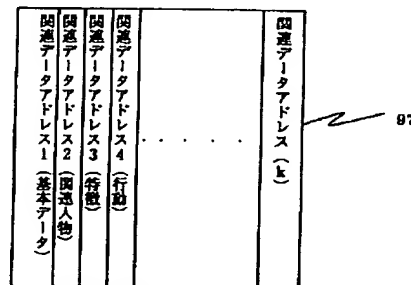 関連データアドレス1(基本データ)
関連データアドレス2(関連人物)
関連データアドレス3(特徴)
関連データアドレス4(行動)
・・・・・
関連データアドレス(k)
97